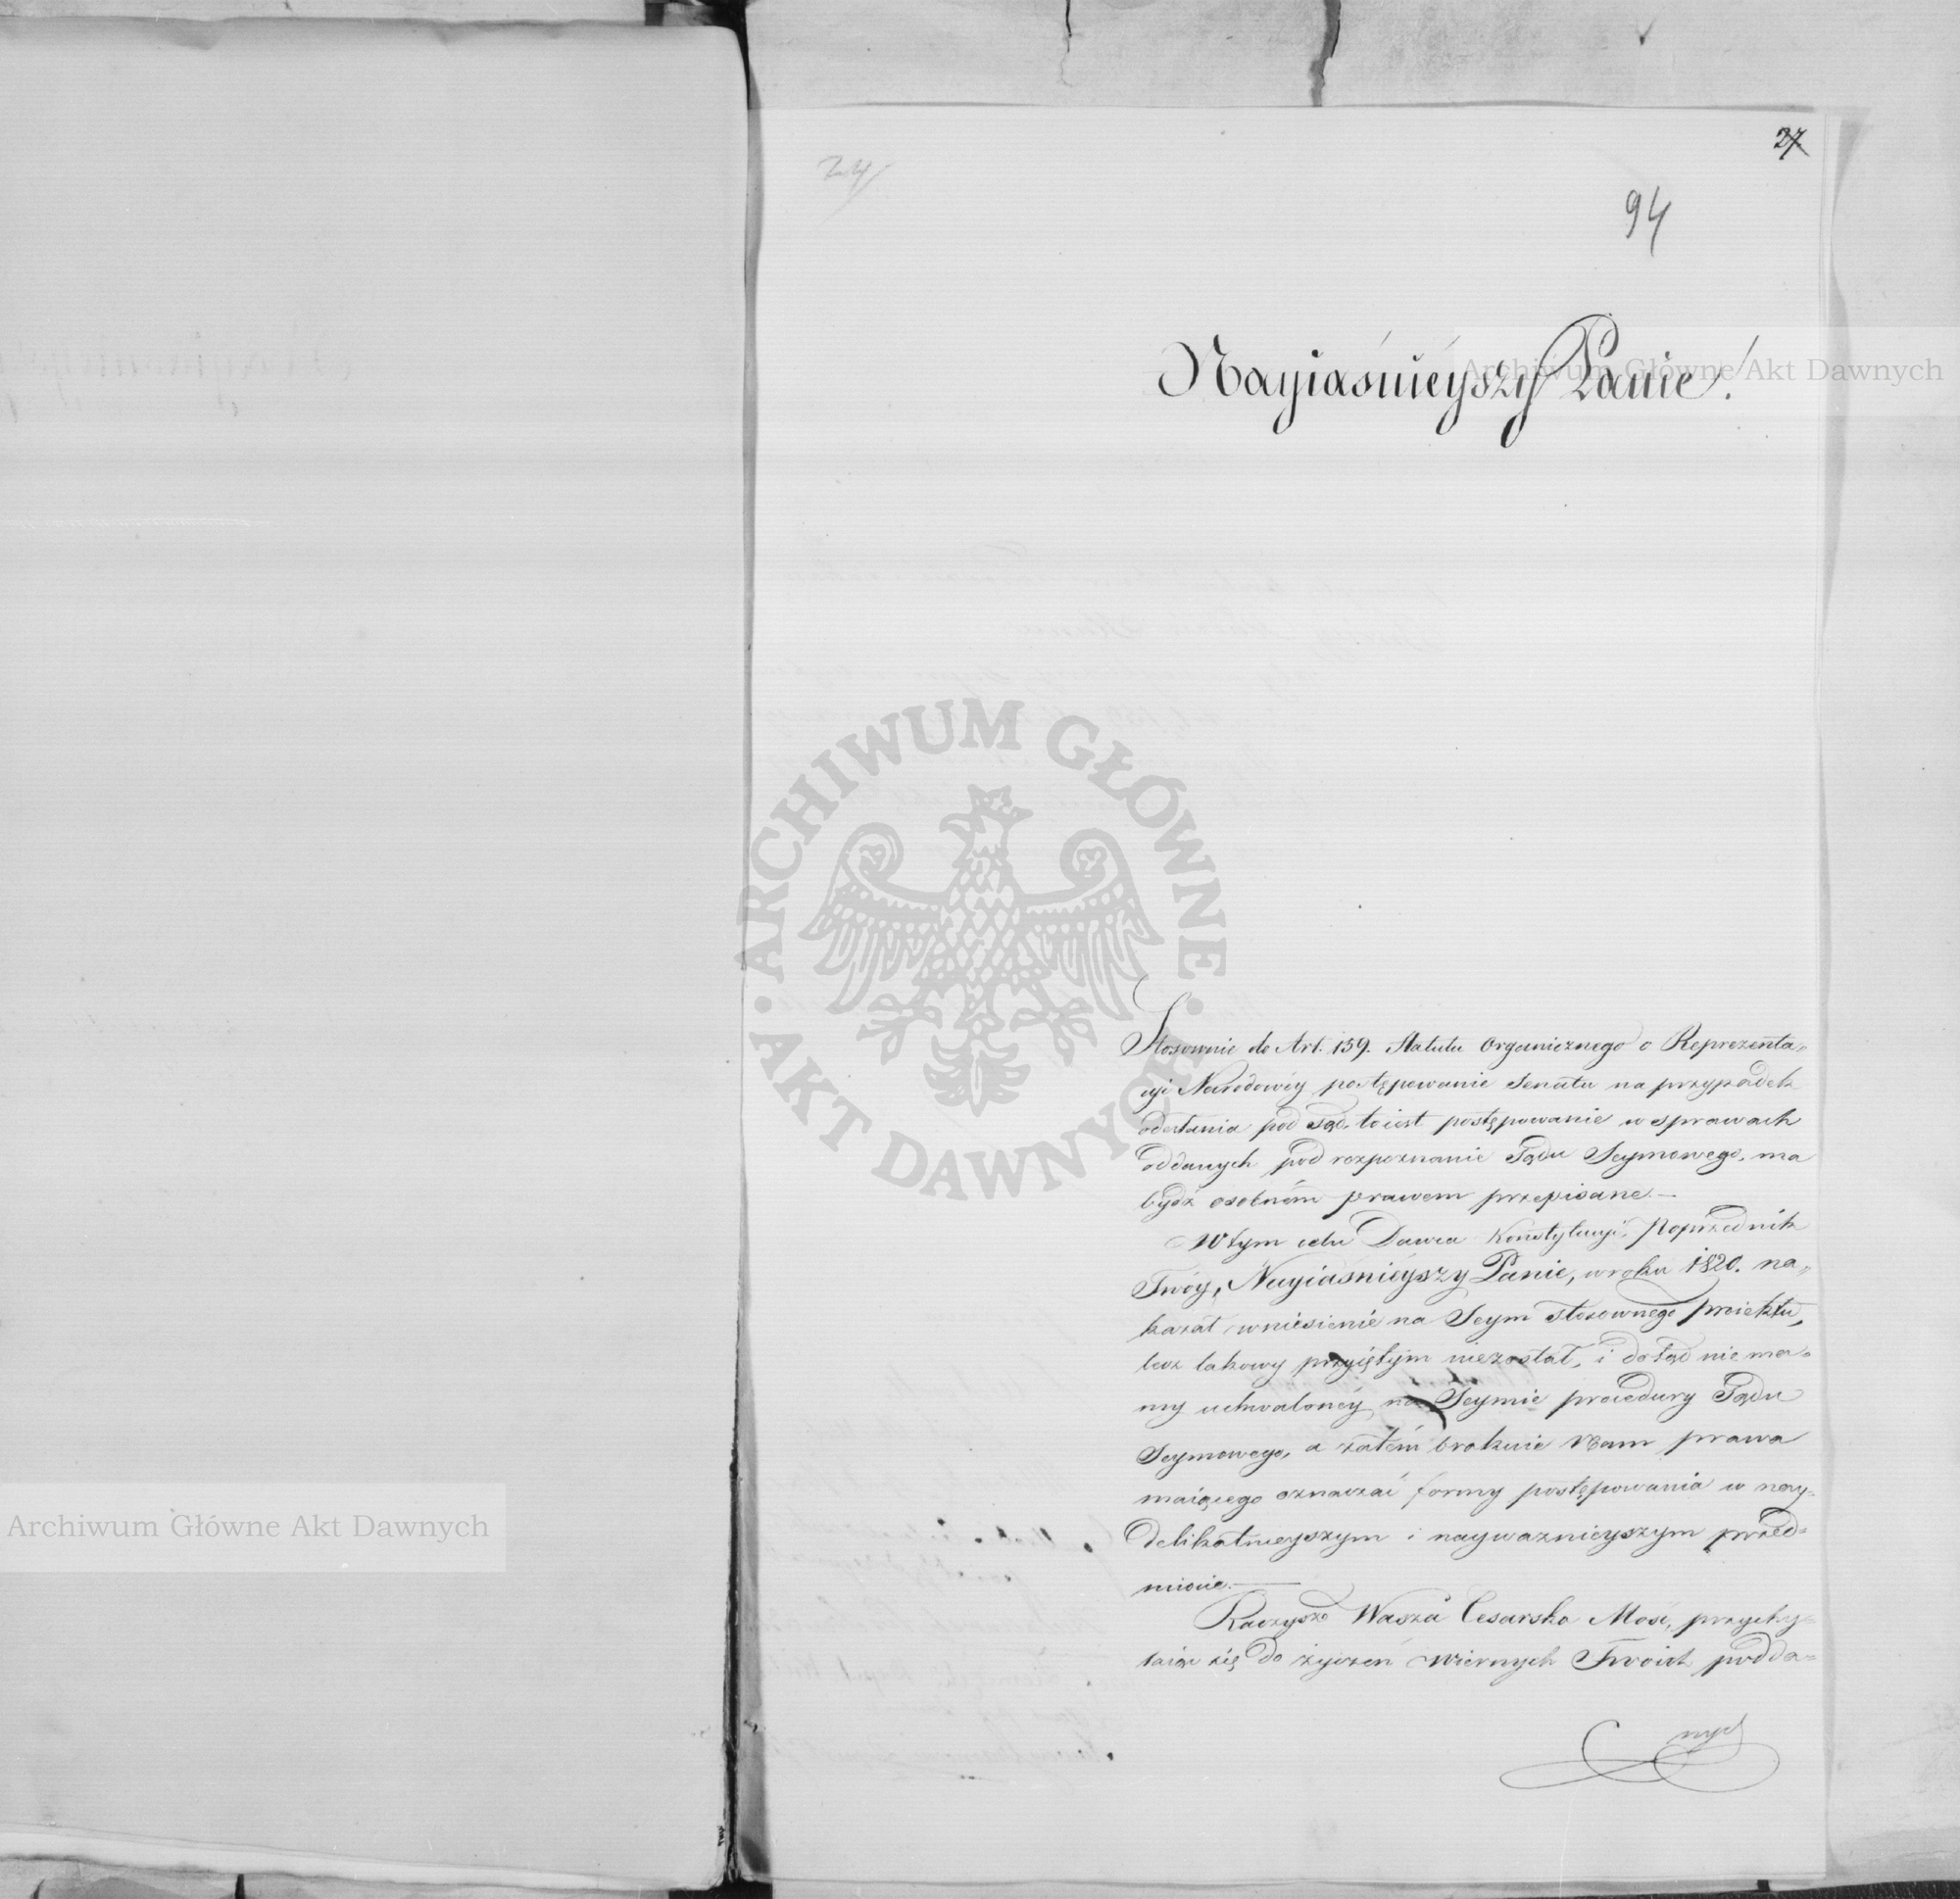 27
24
94
Nayiaśnieyszy Panie!
Stosownie do Art. 159. Statutu Organicznego o Reprezenta-
cyi Narodowéy postępowanie Senatu na przypadek
odesłania pod sąd, to iest postępowanie w sprawach
oddanych pod rozpoznanie Sądu Seymowego, ma
bydź osobném prawem przepisane.—
W tym celu Dawca Konstytucyi, Poprzednik
Twóy, Nayiaśnieyszy Panie, w roku 1820. na-
kazał wniesienie na Seym stosownego proiektu,
lecz takowy przyiętym niezostał, i dotąd nie ma-
my uchwalonéy na Seymie procedury Sądu
Seymowego, a zatém brakuie Nam prawa
maiącego oznaczać formy postępowania w nay-
delikatnieyszym i nayważnieyszym przed-
miocie.—
Raczysz Wasza Cesarsko Mość, przychy-
laiąc się do życzeń wiernych Twoich podda-
nych
ARCHIWUM GŁÓWNE AKT DAWNYCH
Archiwum Główne Akt Dawnych
Archiwum Główne Akt Dawnych